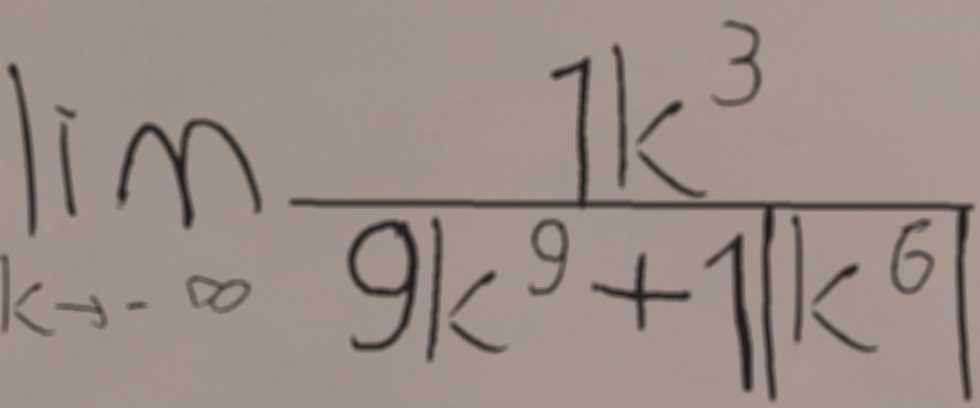 \lim_{k \to -\infty} \frac{1k^3}{9k^9 + 1|k^6|}